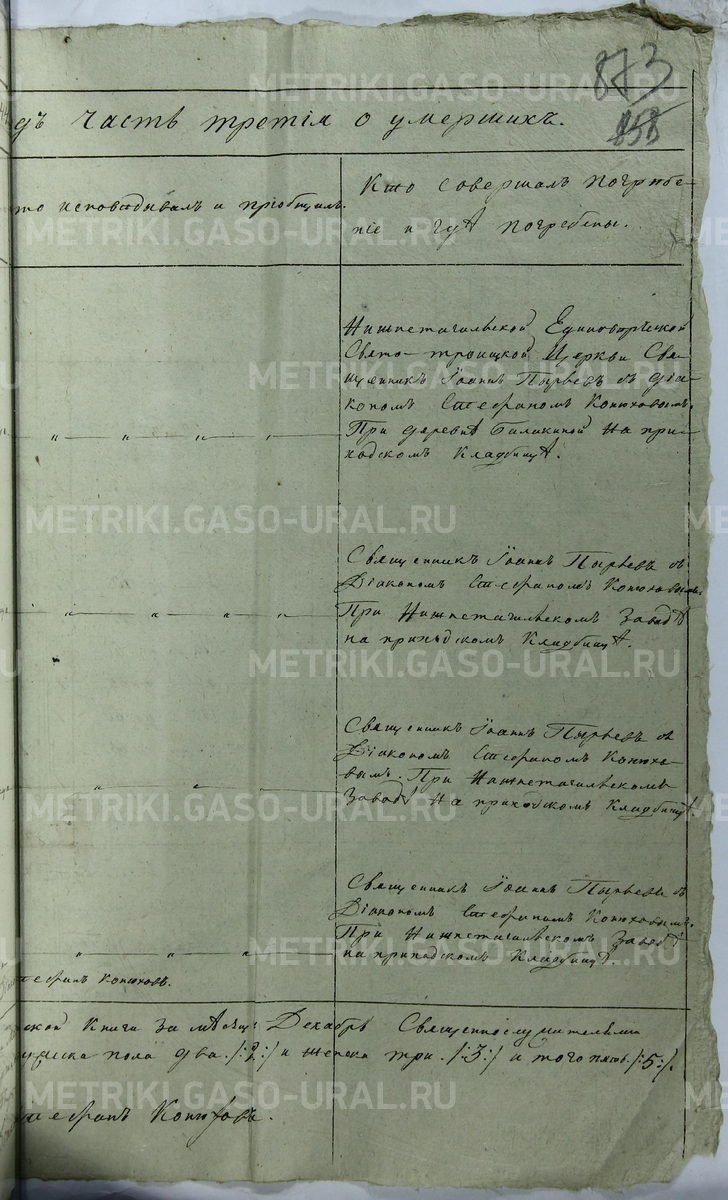 873
858
дъ часть третія о умершихъ.
то исповѣдывалъ и пріобщилъ.
Кто совершалъ погребе-
ніе и гдѣ погребены.
Нижнетагильской Единовѣрческой
Свято-троицкой Церкви Свя-
щенникъ Іоаннъ Пырьевъ съ діа-
кономъ Стефаномъ Конюховымъ.
При деревнѣ Балакиной на при-
ходскомъ Кладбищѣ.
Священникъ Іоаннъ Пырьевъ съ
Діакономъ Стефаномъ Конюховымъ.
При Нижнетагильскомъ Заводѣ
на приходскомъ Кладбищѣ.
Священникъ Іоаннъ Пырьевъ съ
Діакономъ Стефаномъ Конюхо-
вымъ. При Нижнетагильскомъ
Заводѣ на приходскомъ Кладбищѣ
Священникъ Іоаннъ Пырьевъ съ
Діакономъ Стефаномъ Конюховымъ.
При Нижнетагильскомъ Заводѣ
на приходскомъ Кладбищѣ.
тефанъ Конюховъ.
ской Книги за мѣсяцъ Декабрь Священнослужителями
мужеска пола два /:2:/ и женска три /:3:/ итого пять /:5:/.
тефанъ Конюховъ.
METRIKI.GASO-URAL.RU